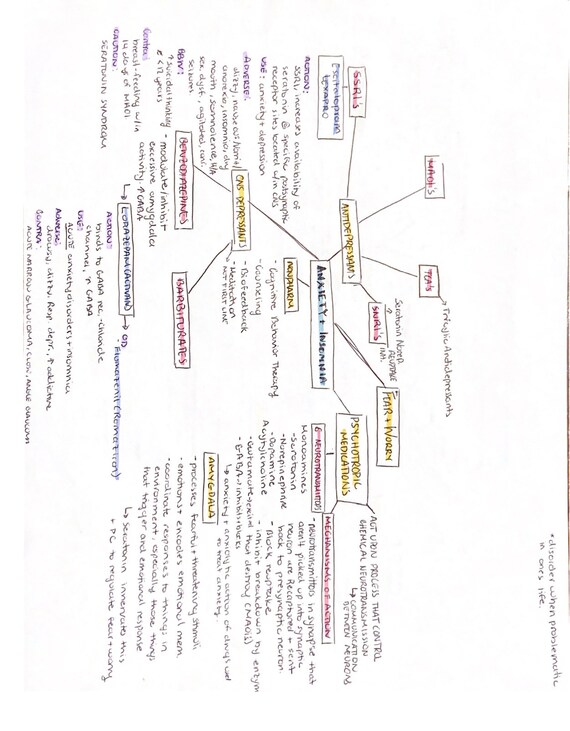 *disorder when problematic
in ones life.
MAOI's
TCA's
Tricyclic Antidepressants
SSRI's
Escitalopram
Lexapro
ANTIDEPRESSANTS
SNRI's
Serotonin Norep
Reuptake
Inh.
FEAR + WORRY
ACT UPON PROCESS THAT CONTROL
CHEMICAL NEUROTRANSMISSION
↳ COMMUNICATION
BETWEEN NEURONS
ACTION:
SSRI, increases availability of
seratonin @ specific postsynaptic
receptor sites located w/in CNS
USE: anxiety + depression
ADVERSE:
anorexia, insomnia, dry
mouth, somnolence, H/A
sex dysf., agitated,
seizures.
BBW:
↑ suicidal
< 12 years
Contra:
breast-feeding w/in
14 days of MAOI
CAUTION:
SERATONIN SYNDROM
ANXIETY + INSOMNIA
NONPHARM
- Cognitive Behavior Therapy
- Counseling
- Biofeedback
- Meditation
ACT FIRST LINE
PSYCHOTROPIC
MEDICATIONS
6 NEUROTRANSMITTERS
Monoamines
- Serotonin
- Norepinephrine
- Dopamine
Acytylcholine
- Glutamate
- GABA
MECHANISMS OF ACTION
- neurotransmitters in synapse that
aren't picked up into synaptic
neuron are Recaptured + sent
back to presynaptic neuron.
- Block reuptake
- inhibit breakdown by enzym
that destroy (MAOIs)
↳ anxiety + anxiolytic action of drugs used
to treat anxiety.
CNS DEPRESSANTS
BENZODIAZEPINES
- modulate/inhibit
excessive amygdala
activity ↑ GABA
BARBITURATES
AMYGDALA
- processes fearful + threatening stimuli
- emotions + encodes emotional mem.
- coordinate responses to things in
environment especially those things
that trigger and emotional response
↳ Seratonin innervates this
+ PC to regulate fear + worry
↳ LORAZEPAM (ATIVAN) → OD
- Flumazenil (Romazicon)
ACTION:
binds to GABA rec. -chloride
channel, ↑ GABA
USE:
ACUTE anxiety disorders + insomnia
Adverse:
drowsy, dizzy, Resp depr, ↑ addictive
CONTRA:
ACUTE NARROW GLAUCOMA,